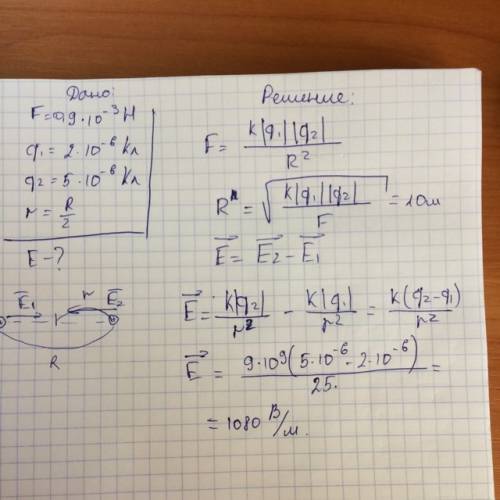 Дано:
F=0,9·10⁻³ Н
q₁ = 2·10⁻⁶ Кл
q₂ = 5·10⁻⁶ Кл
r = R/2
E-?
E₁ r E₂
R
Решение:
F = k|q₁||q₂| / R²
R = √(k|q₁||q₂| / F) = 10м
E = E₂ - E₁
E = k|q₂| / r² - k|q₁| / r² = k(q₂-q₁) / r²
E = 9·10⁹(5·10⁻⁶ - 2·10⁻⁶) / 25 =
= 1080 В/м.